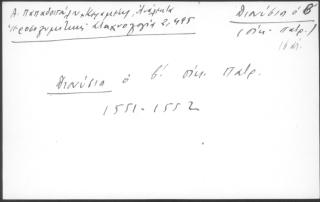 Α. Παπαδοπούλου Κεραμέως, Ανάλεκτα
Ιεροσολυμιτικής Σταχυολογίας 2, 495
Διονύσιο ὁ Β'
(οἰκ. πατρ.)
16 αἰ.
Διονύσιο ὁ β'. οἰκ. πατρ.
1551-1552